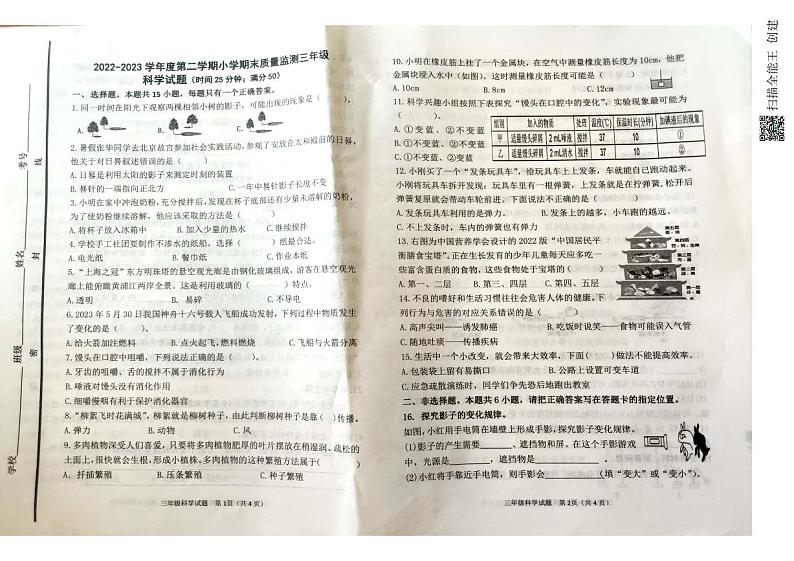 2022-2023 学年度第二学期小学期末质量监测三年级
科学试题（时间 25 分钟；满分 50）
一、选择题。本题共 15 小题，每题只有一个正确答案。
1.同一时间在阳光下观察两棵相邻小树的影子，可能出现的现象是（ ）。
A. B. C.
2.暑假张华同学去北京故宫参加社会实践活动，参观了安放在太和殿前的日晷，
他关于对日晷叙述错误的是（ ）
A.日晷是利用太阳的影子来测定时刻的装置
B.晷针的一端指向正北方 C.一年中晷针影子长度不变
3.小明在家中冲泡奶粉，充分搅拌后，发现在杯子底部还有少量未溶解的奶粉，
为了使奶粉继续溶解，他应该采取的方法是（ ）
A.将杯子放入冰箱中 B.加入少量的热水 C.继续搅拌
4.学校手工社团要制作不渗水的纸船，选择（ ）纸最合适。
A.电光纸 B.餐巾纸 C.作业本纸
5.“上海之冠”东方明珠塔的悬空观光廊是由钢化玻璃组成，游客在悬空观光
廊上能俯瞰黄浦江两岸全景。这是利用玻璃的（ ）特点。
A.透明 B. 易碎 C.不导电
6.2023 年 5 月 30 日我国神舟十六号载人飞船成功发射，下列过程中物质发生
了变化的是（ ）。
A.给火箭加注燃料 B.点火起飞，燃料燃烧 C.飞船与火箭分离
7.馒头在口腔中咀嚼，下列说法正确的是（ ）。
A.牙齿的咀嚼、舌的搅拌不属于消化行为
B.唾液对馒头没有消化作用
C.细嚼慢咽有利于保护消化器官
8.“柳絮飞时花满城”，柳絮就是柳树种子，由此判断柳树种子是靠（ ）传播。
A.弹力 B.动物 C. 风
9.多肉植物深受人们喜爱，只要将多肉植物肥厚的叶片摆放在稍湿润、疏松的
土上面，很快就会生根，形成小植株。多肉植物的这种繁殖方法属于（ ）
A. 扦插繁殖 B.压条繁殖 C.种子繁殖
三年级科学试题 第 1页（共 4 页）
10.小明在橡皮筋上挂了一个金属块，在空气中测量橡皮筋长度为 10cm，他把
金属块浸入水中（如图），这时测量橡皮筋长度可能是（ ）
A.10cm B.8cm C.12cm
11.科学兴趣小组按照下表探究“馒头在口腔中的变化”，实验现象最可能为
（ ）。
A.①变蓝、②不变蓝
B.①不变蓝、②变蓝
C.①变蓝、②变蓝
组别 加入的物质 处理 温度(℃) 保温时长(分钟) 加碘液后的现象
甲 适量馒头碎屑 2 mL唾液 搅拌 37 10 ①
乙 适量馒头碎屑 2 mL清水 搅拌 37 10 ②
12.小刚买了一个“发条玩具车”，给玩具车上上发条，车就能自己跑动起来。
小刚将玩具车拆开发现：玩具车里有一根弹簧，上发条就是在拧弹簧，松开后
弹簧复原就会带动车轮前进。下面说法不正确的是（ ）
A.发条玩具车利用的是弹力。 B.发条上的越多，小车跑的越远。
C.不上发条时，车内的弹簧也有弹力
13.右图为中国营养学会设计的 2022 版“中国居民平
衡膳食宝塔”。正在生长发育的少年儿童每天应多吃一
些富含蛋白质的食物，这些食物处于宝塔的（ ）
A.第一、二层 B.第三、四层 C.第四、五层
14.不良的嗜好和生活习惯往往会危害人体的健康。下
列行为与危害的对应关系错误的是（ ）
A.高声尖叫——诱发肺癌 B.吃饭时说笑——食物可能误入气管
C.随地吐痰——传播疾病
15.生活中一个小改变，就会带来大效率，下面（ ）做法不能提高效率。
A.包装袋上留有易撕口 B.公路上设置可变车道
C.应急疏散演练时，同学们争先恐后地跑出教室
二、非选择题。本题共 6 小题，请把正确答案写在答题卡的指定位置。
16. 探究影子的变化规律。
如图，小红用手电筒在墙壁上形成手影，探究影子变化规律。
(1)影子的产生需要______、遮挡物和屏。在这个手影游戏
中，光源是______，遮挡物是____________。
(2)小红将手靠近手电筒，则手影会________(填“变大”或“变小”)。
三年级科学试题 第 2页（共 4 页）
学校
班级
姓名
考号
密
封
线
扫描全能王 创建